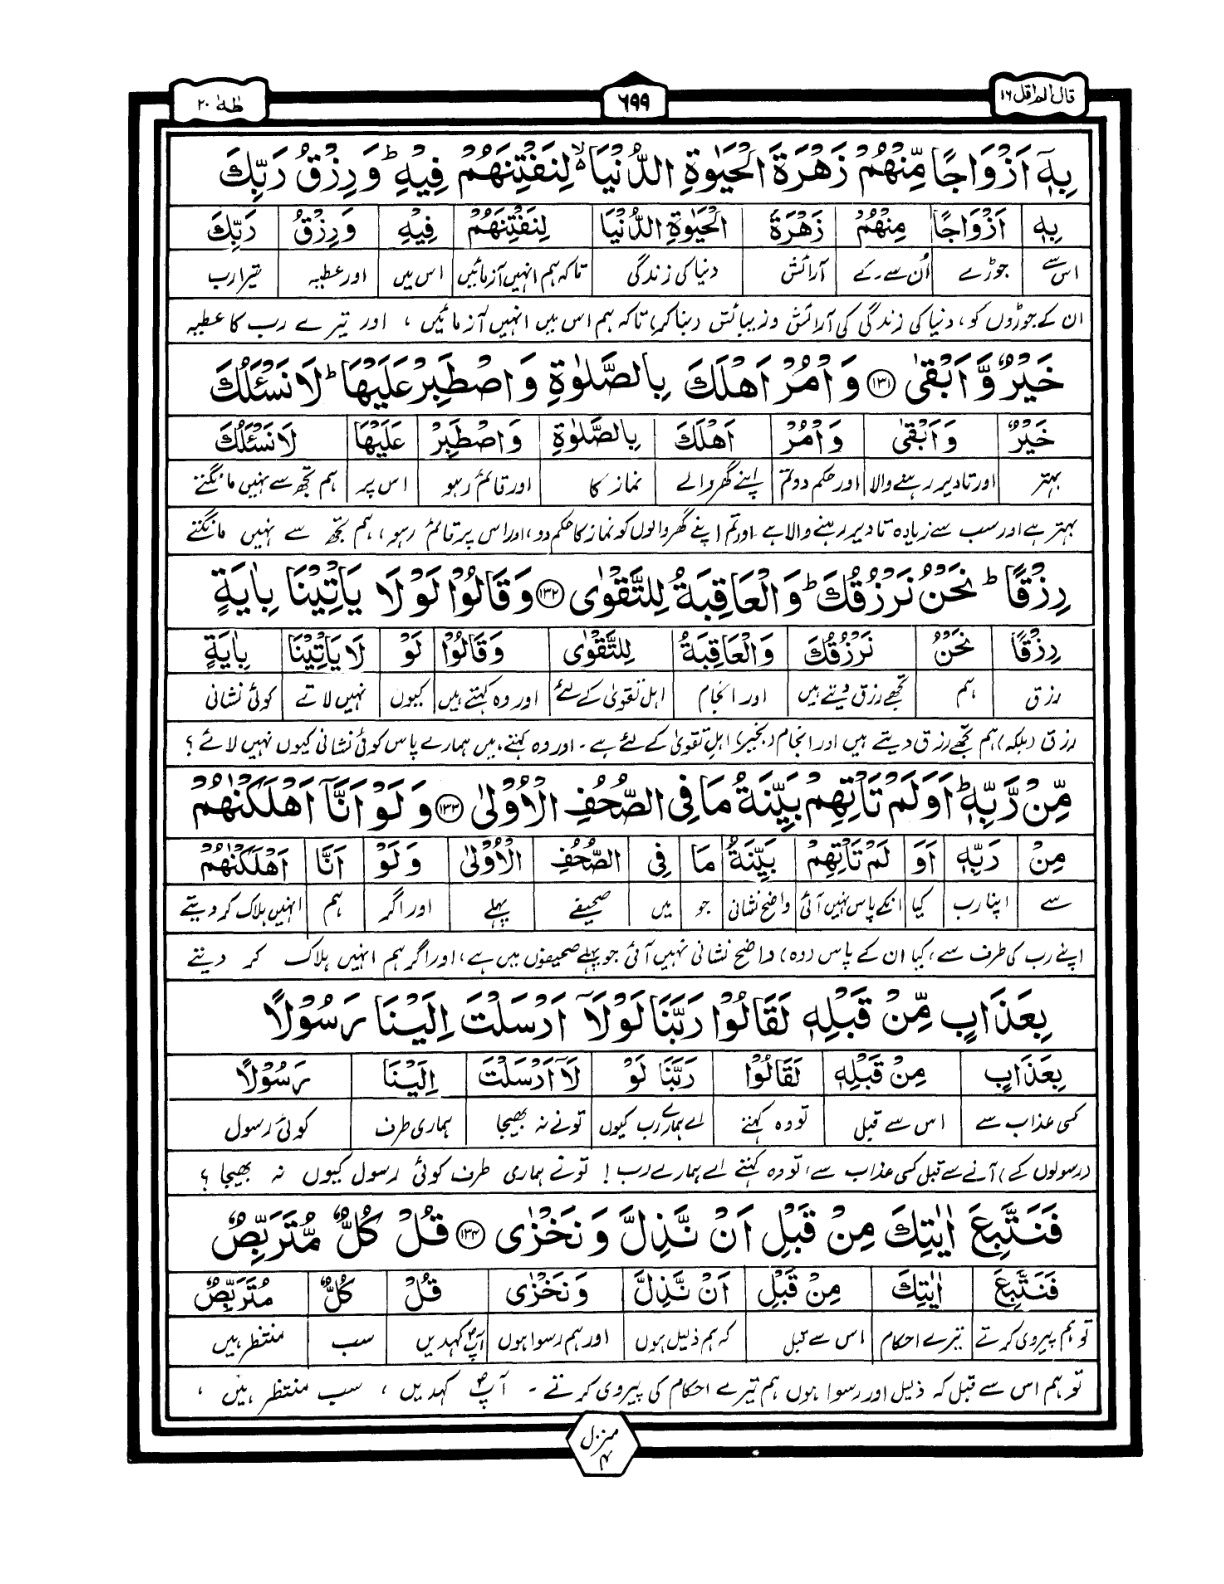 قال الم اقل ١٦
٦٩٩
طٰهٰ ٢٠
بِهٖۤ اَزْوَاجًا مِّنْهُمْ زَهْرَةَ الْحَيٰوةِ الدُّنْيَا ۙ۬ لِنَفْتِنَهُمْ فِيْهِ ؕ وَ رِزْقُ رَبِّكَ
بِهٖ اَزْوَاجًا مِنْهُمْ زَهْرَةَ الْحَيٰوةِ الدُّنْيَا لِنَفْتِنَهُمْ فِيْهِ وَرِزْقُ رَبِّكَ
اس سے جوڑے اُن سے۔کے آرائش دنیا کی زندگی تاکہ ہم انہیں آزمائیں اس میں اور عطیہ تیرا رب
ان کے جوڑوں کو، دنیا کی زندگی کی آرائش و زیبائش (بنا کر) تاکہ ہم اس میں انہیں آزمائیں ، اور تیرے رب کا عطیہ
خَيْرٌ وَّ اَبْقٰى ﴿١٣١﴾ وَ اْمُرْ اَهْلَكَ بِالصَّلٰوةِ وَ اصْطَبِرْ عَلَيْهَا ؕ لَا نَسْـَٔلُكَ
خَيْرٌ وَ اَبْقٰى وَ اْمُرْ اَهْلَكَ بِالصَّلٰوةِ وَ اصْطَبِرْ عَلَيْهَا لَا نَسْئَلُكَ
بہتر اور تادیر رہنے والا اور حکم دو تم اپنے گھر والے نماز کا اور قائم رہو اس پر ہم تجھ سے نہیں مانگتے
بہتر ہے اور سب سے زیادہ تادیر رہنے والا ہے اور تم اپنے گھر والوں کو نماز کا حکم دو، اور اس پر قائم رہو، ہم تجھ سے نہیں مانگتے
رِزْقًا ؕ نَحْنُ نَرْزُقُكَ ؕ وَالْعَاقِبَةُ لِلتَّقْوٰى ﴿١٣٢﴾ وَقَالُوْا لَوْ لَا يَاْتِيْنَا بِاٰيَةٍ
رِزْقًا نَحْنُ نَرْزُقُكَ وَالْعَاقِبَةُ لِلتَّقْوٰى وَقَالُوْا لَوْ لَا يَاْتِيْنَا بِاٰيَةٍ
رزق ہم تجھے رزق دیتے ہیں اور انجام اہل تقویٰ کے لئے اور وہ کہتے ہیں کیوں نہیں لاتے کوئی نشانی
رزق (بلکہ) ہم تجھے رزق دیتے ہیں اور انجام (بخیر) اہلِ تقویٰ کے لئے ہے ۔ اور وہ کہتے ہیں ہمارے پاس کوئی نشانی کیوں نہیں لائے ؟
مِّنْ رَّبِّهٖ ؕ اَوَلَمْ تَاْتِهِمْ بَيِّنَةُ مَا فِي الصُّحُفِ الْاُوْلٰى ﴿١٣٣﴾ وَ لَوْ اَنَّاۤ اَهْلَكْنٰهُمْ
مِنْ رَبِّهٖ اَوَ لَمْ تَاْتِهِمْ بَيِّنَةُ مَا فِي الصُّحُفِ الْاُوْلٰى وَ لَوْ اَنَّا اَهْلَكْنٰهُمْ
سے اپنا رب کیا انکے پاس نہیں آئی واضح نشانی جو میں صحیفے پہلے اور اگر ہم انہیں ہلاک کر دیتے
اپنے رب کی طرف سے، کیا ان کے پاس (وہ) واضح نشانی نہیں آئی جو پہلے صحیفوں میں ہے، اور اگر ہم انہیں ہلاک کر دیتے
بِعَذَابٍ مِّنْ قَبْلِهٖ لَقَالُوْا رَبَّنَا لَوْلَاۤ اَرْسَلْتَ اِلَيْنَا رَسُوْلًا
بِعَذَابٍ مِنْ قَبْلِهٖ لَقَالُوْا رَبَّنَا لَوْ لَاۤ اَرْسَلْتَ اِلَيْنَا رَسُوْلًا
کسی عذاب سے اس سے قبل تو وہ کہتے اے ہمارے رب کیوں تونے نہ بھیجا ہماری طرف کوئی رسول
(رسولوں کے) آنے سے قبل کسی عذاب سے، تو وہ کہتے اے ہمارے رب ! تونے ہماری طرف کوئی رسول کیوں نہ بھیجا ؟
فَنَتَّبِعَ اٰيٰتِكَ مِنْ قَبْلِ اَنْ نَّذِلَّ وَ نَخْزٰى ﴿١٣٤﴾ قُلْ كُلٌّ مُّتَرَبِّصٌ
فَنَتَّبِعَ اٰيٰتِكَ مِنْ قَبْلِ اَنْ نَّذِلَّ وَ نَخْزٰى قُلْ كُلٌّ مُتَرَبِّصٌ
تو ہم پیروی کرتے تیرے احکام اس سے قبل کہ ہم ذلیل ہوں اور ہم رسوا ہوں آپؐ کہدیں سب منتظر ہیں
تو ہم اس سے قبل کہ ذلیل اور رسوا ہوں ہم تیرے احکام کی پیروی کرتے ۔ آپؐ کہدیں ، سب منتظر ہیں ،
منزل ٤